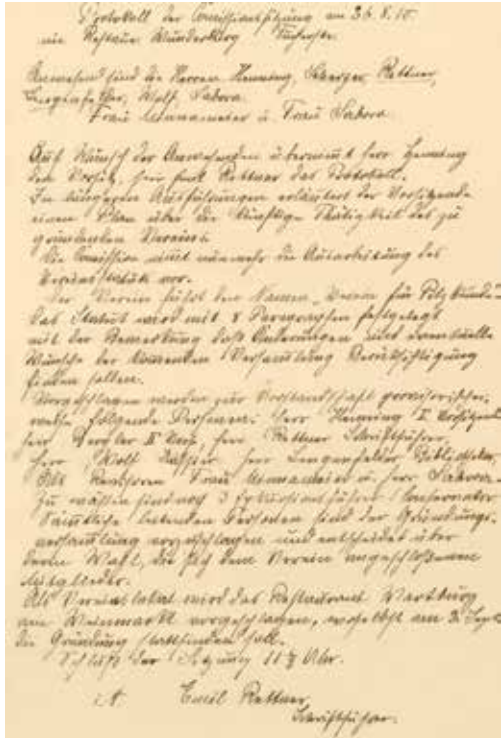 Protokoll der Comissionssitzung am 26.8.10.
im Restaur. Wunderburg Tucherstr.
Anwesend sind die Herren Henning, Rettner,
Lengenfelder, Wolf, Sabora.
Frau Unnameier u. Frau Sabora.
Auf Wunsch der Anwesenden übernimt Herr Henning
den Vorsitz, Herr Rettner das Protokoll.
In längeren Ausführungen erläutert der Vorsitzende
einen Plan über die künftige Thätigkeit des zu
gründenden Vereins.
Die Comission nimt nunmehr die Ausarbeitung des
Vereinsstatuts vor.
Der Verein führt den Namen „Verein für Pilzkunde“
Das Statut wird mit 8 Paragraphen festgelegt
mit der Bemerkung daß Änderungen und eventuelle
Wünsche der Versamlung Berücksichtigung
finden sollen.
Vorgeschlagen werden zur Vorstandschaft provisorischer-
weise folgende Personen: Herr Henning I. Vorsitzender
Herr II. Vors., Herr Rettner Schriftführer,
Herr Wolf Kassier Herr Lengenfelder Bibliothekar.
Als Revisoren Frau Unnameier u. Herr Sabora.
Zu wählen sind noch 3 Exkursionsführer Conservator
Sämtliche leitenden Personen sind der Gründungs-
versamlung vorgeschlagen und entscheidet über
deren Wahl, die sich dem Verein angeschloßenen
Mitglieder.
Als Vereinslokal wird das Restaurant Wartburg
am Weinmarkt vorgeschlagen, woselbst am 3. Sept.
die Gründung stattfinden soll.
Schluß der Sitzung 11½ Uhr.
Emil Rettner
Schriftführer.